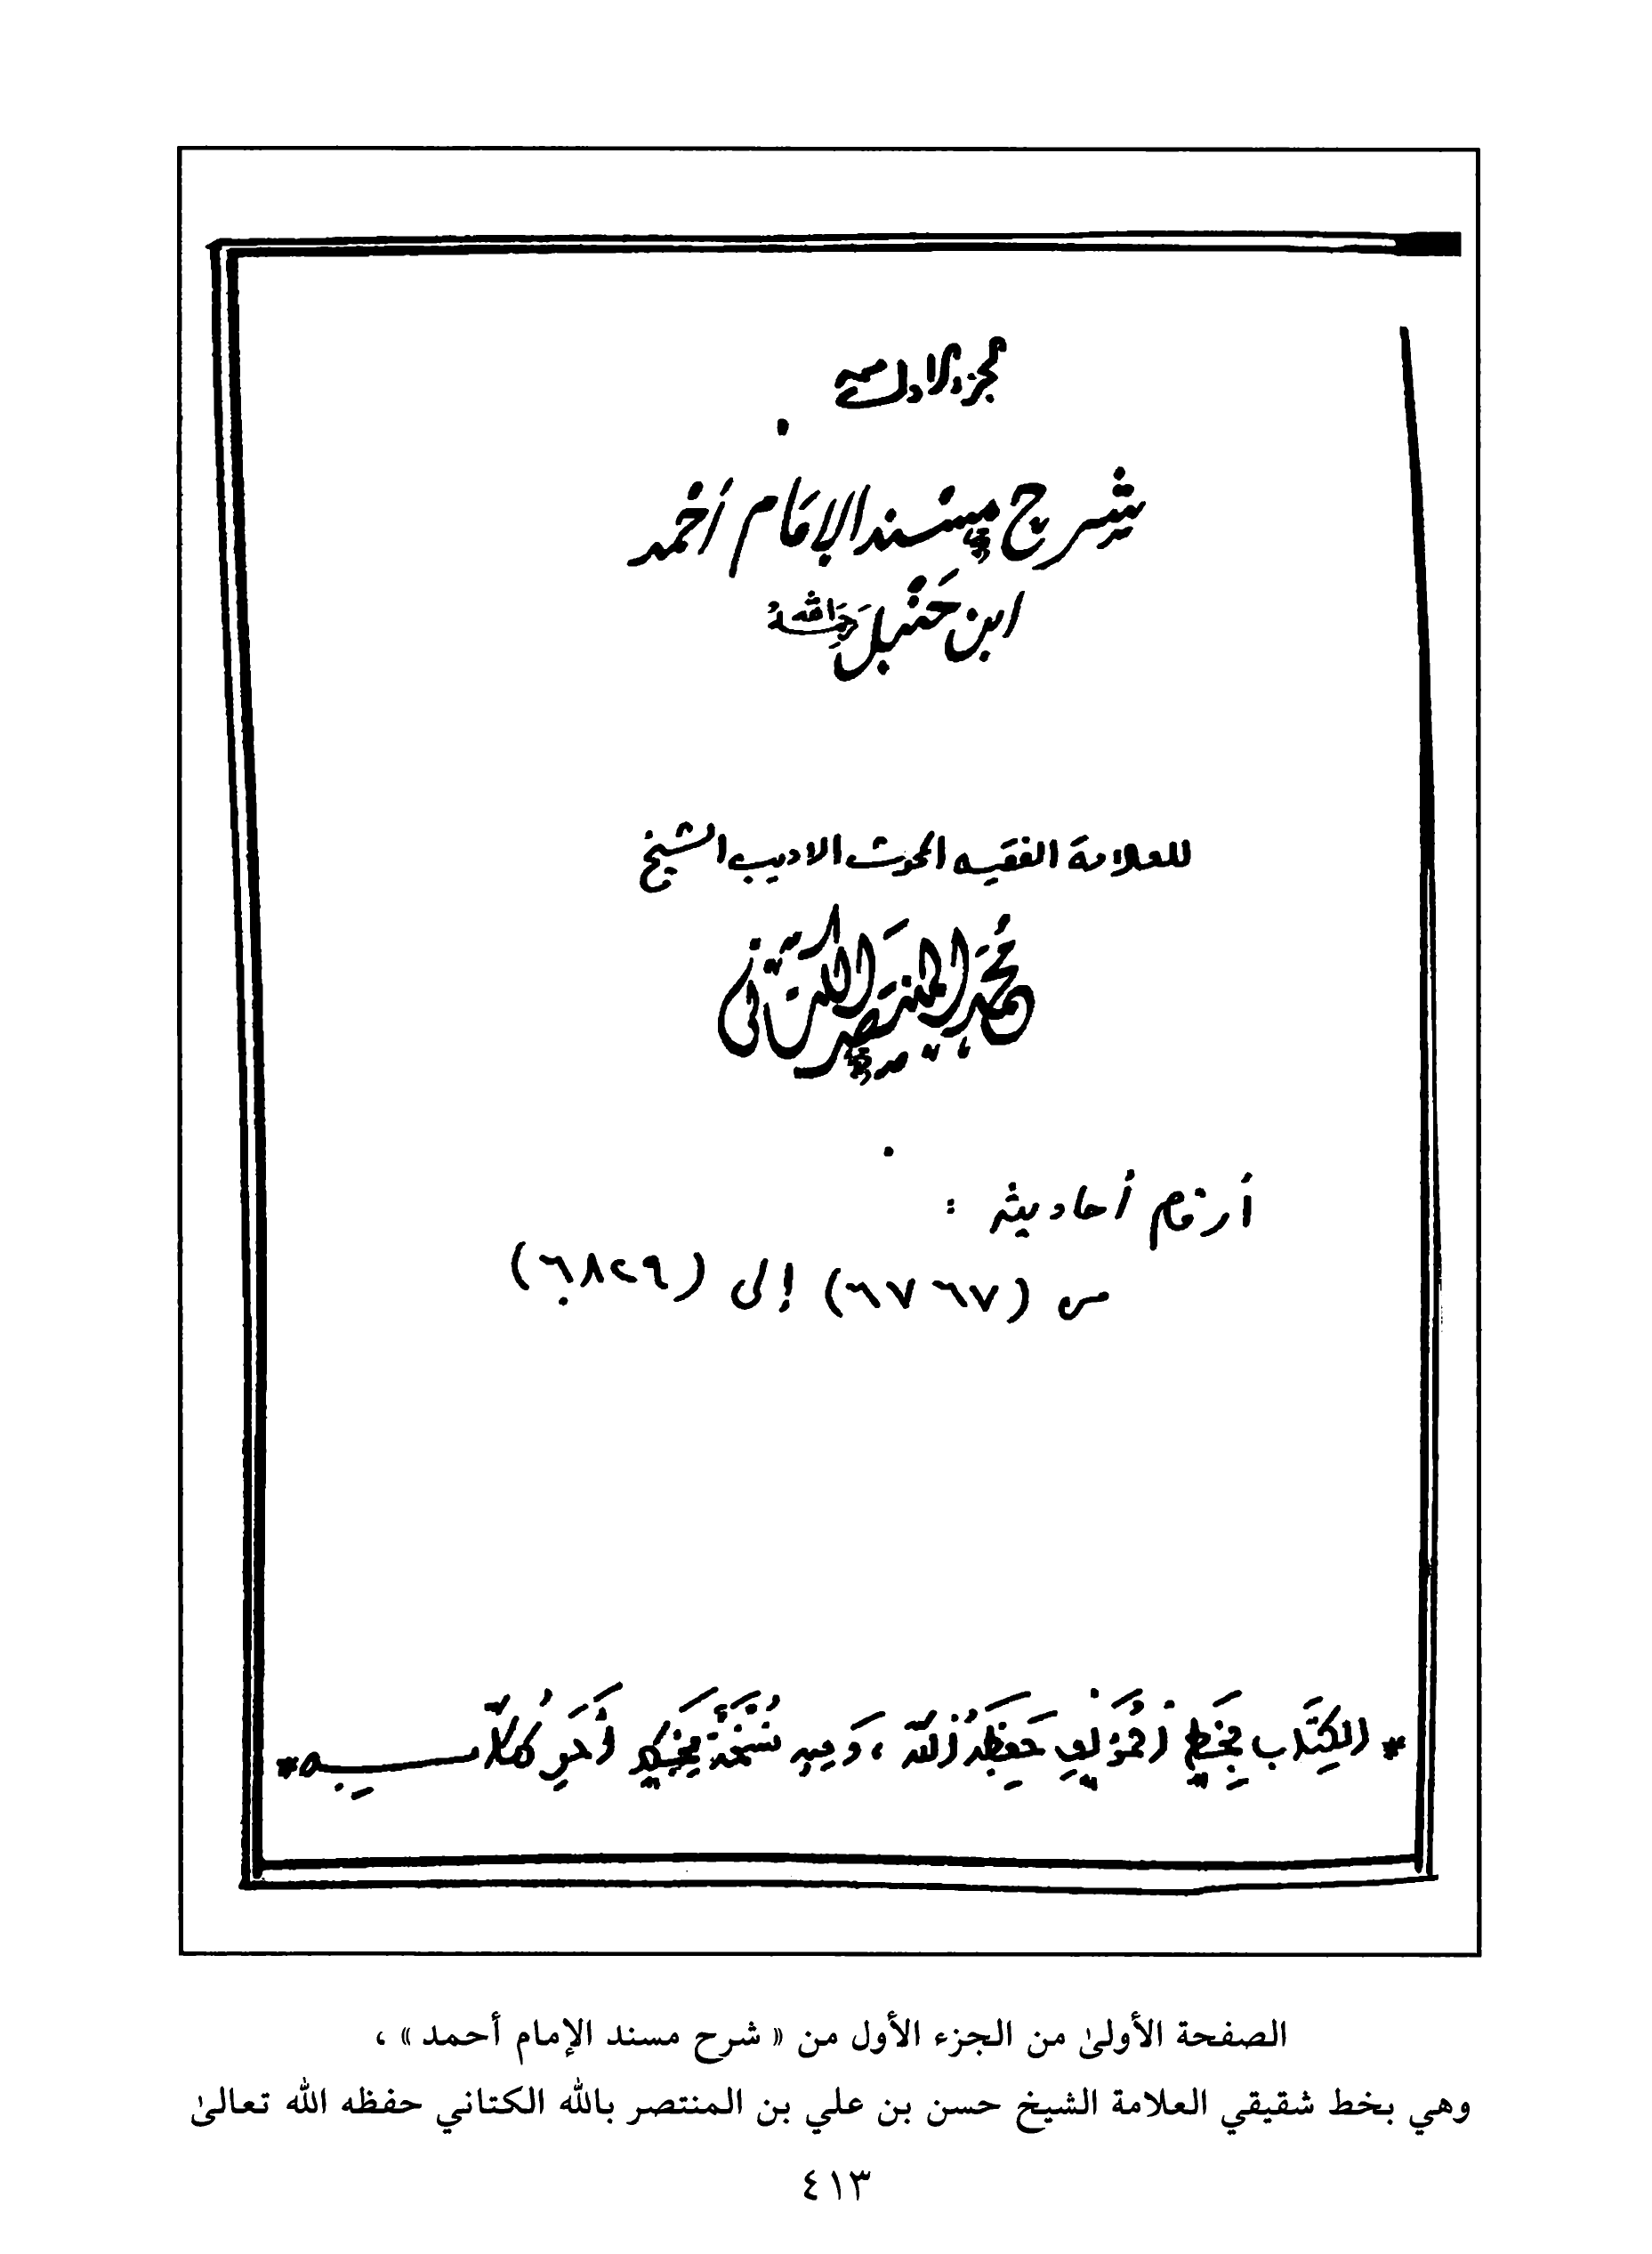 الجزء الاول من
شرح مسند الإمام أحمد
ابن حنبل رحمه الله
للعلامة الفقيه المحدث الاديب الشيخ
محمد المنتصر الكتاني
أرقام أحاديثه :
من (٦٧٦٧) إلى (٦٨٢٩)
* الكِتَاب بِخَطِّ المُؤَلِّفِ حَفِظَهُ اللهُ ، وفيه نُسْخَة بِخَطِّ أَحَدِ طُلاَّبِه *
الصفحة الأولىٰ من الجزء الأول من « شرح مسند الإمام أحمد » ،
وهي بخط شقيقي العلامة الشيخ حسن بن علي بن المنتصر بالله الكتاني حفظه الله تعالىٰ
٤١٣